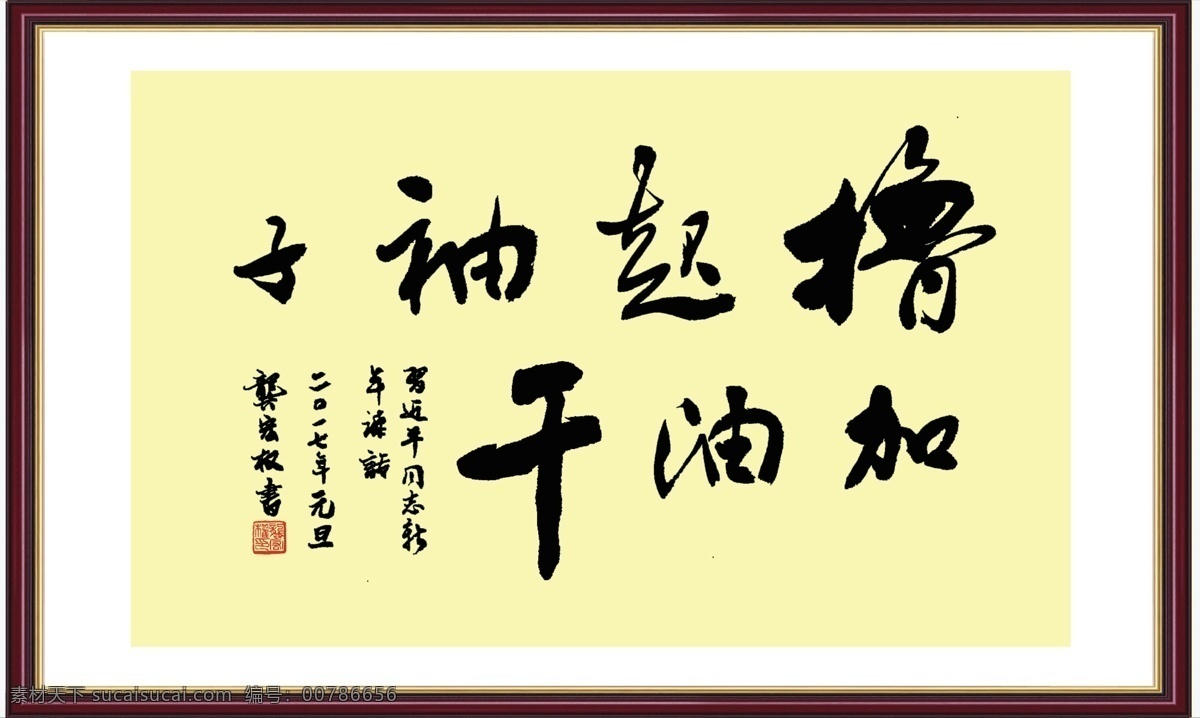 撸起袖子
加油干
習近平同志新
年讲話
二〇一七年元旦
龔宏权書
素材天下 sucaisucai.com 编号：00786656